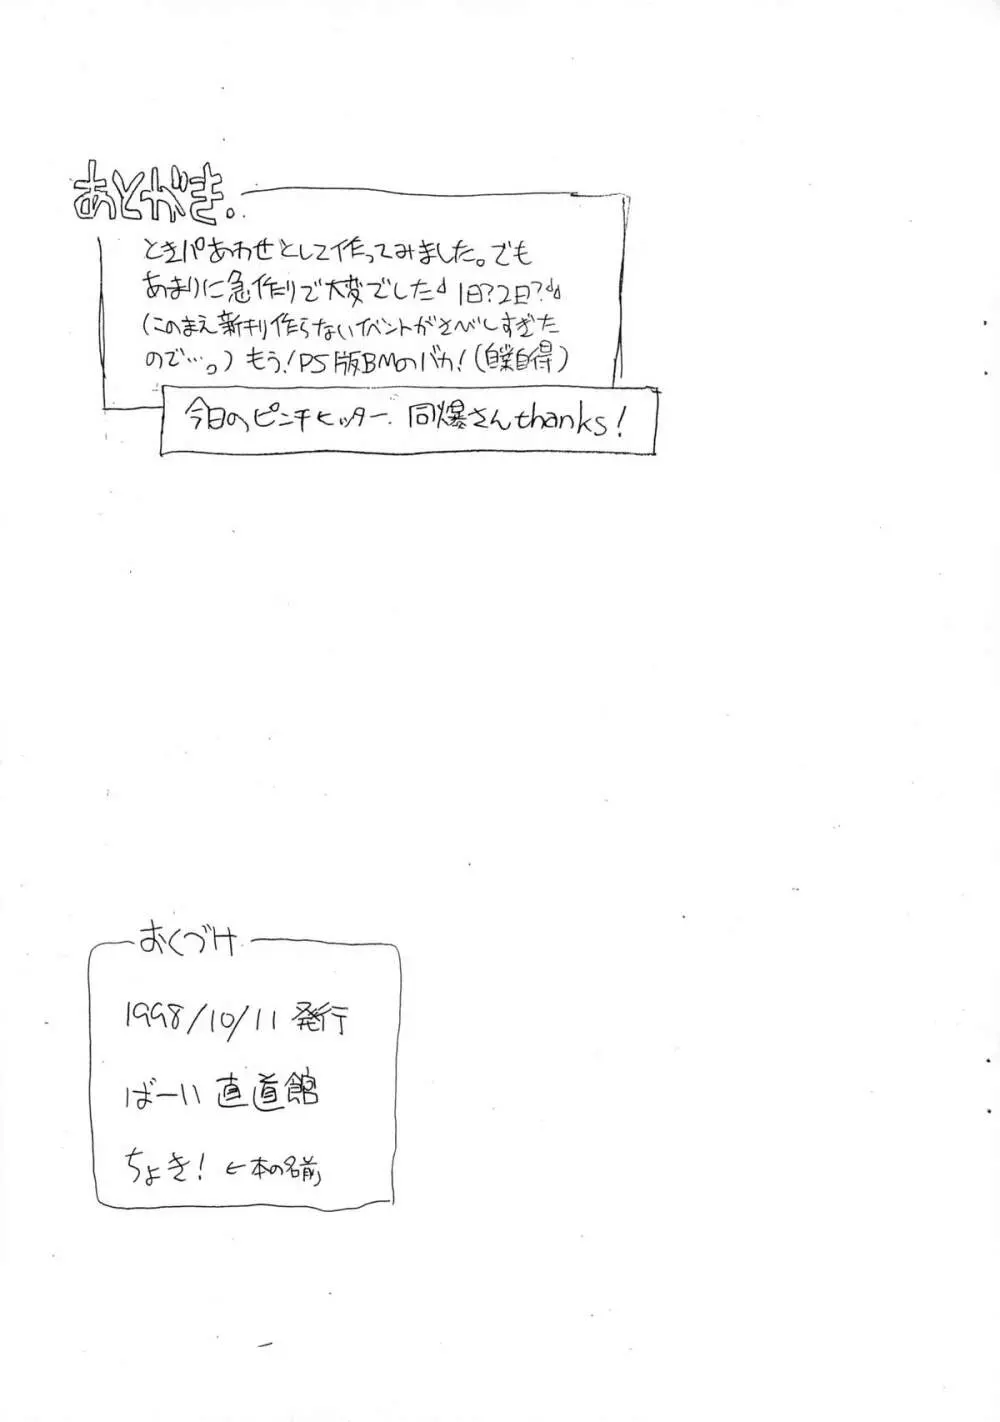 あとがき。
ときパあわせとして作ってみました。でも
あまりに急作りで大変でした 1日?2日?
(このまえ新刊作らないイベントがさべしすぎた
ので…。) もう!PS版BMのバカ!(自業自得)
今日のピンチヒッター. 同爆さんthanks!
おくづけ
1998/10/11 発行
ばーい 直道館
ちょき! ←本の名前